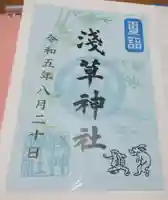 夏詣
淺草神社
令和五年八月二十日